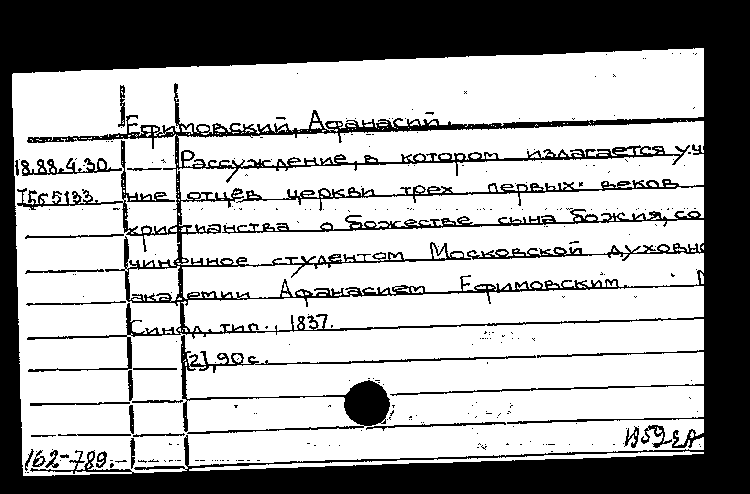 Ефимовский, Афанасий.
18.88.4.30. Рассуждение, в котором излагается уче
I 565133. ние отцев церкви трех первых веков
христианства о божестве сына божия, со
чиненное студентом Московской духовно
академии Афанасием Ефимовским. М
Синод. тип., 1837.
[2], 90 с.
162-789.